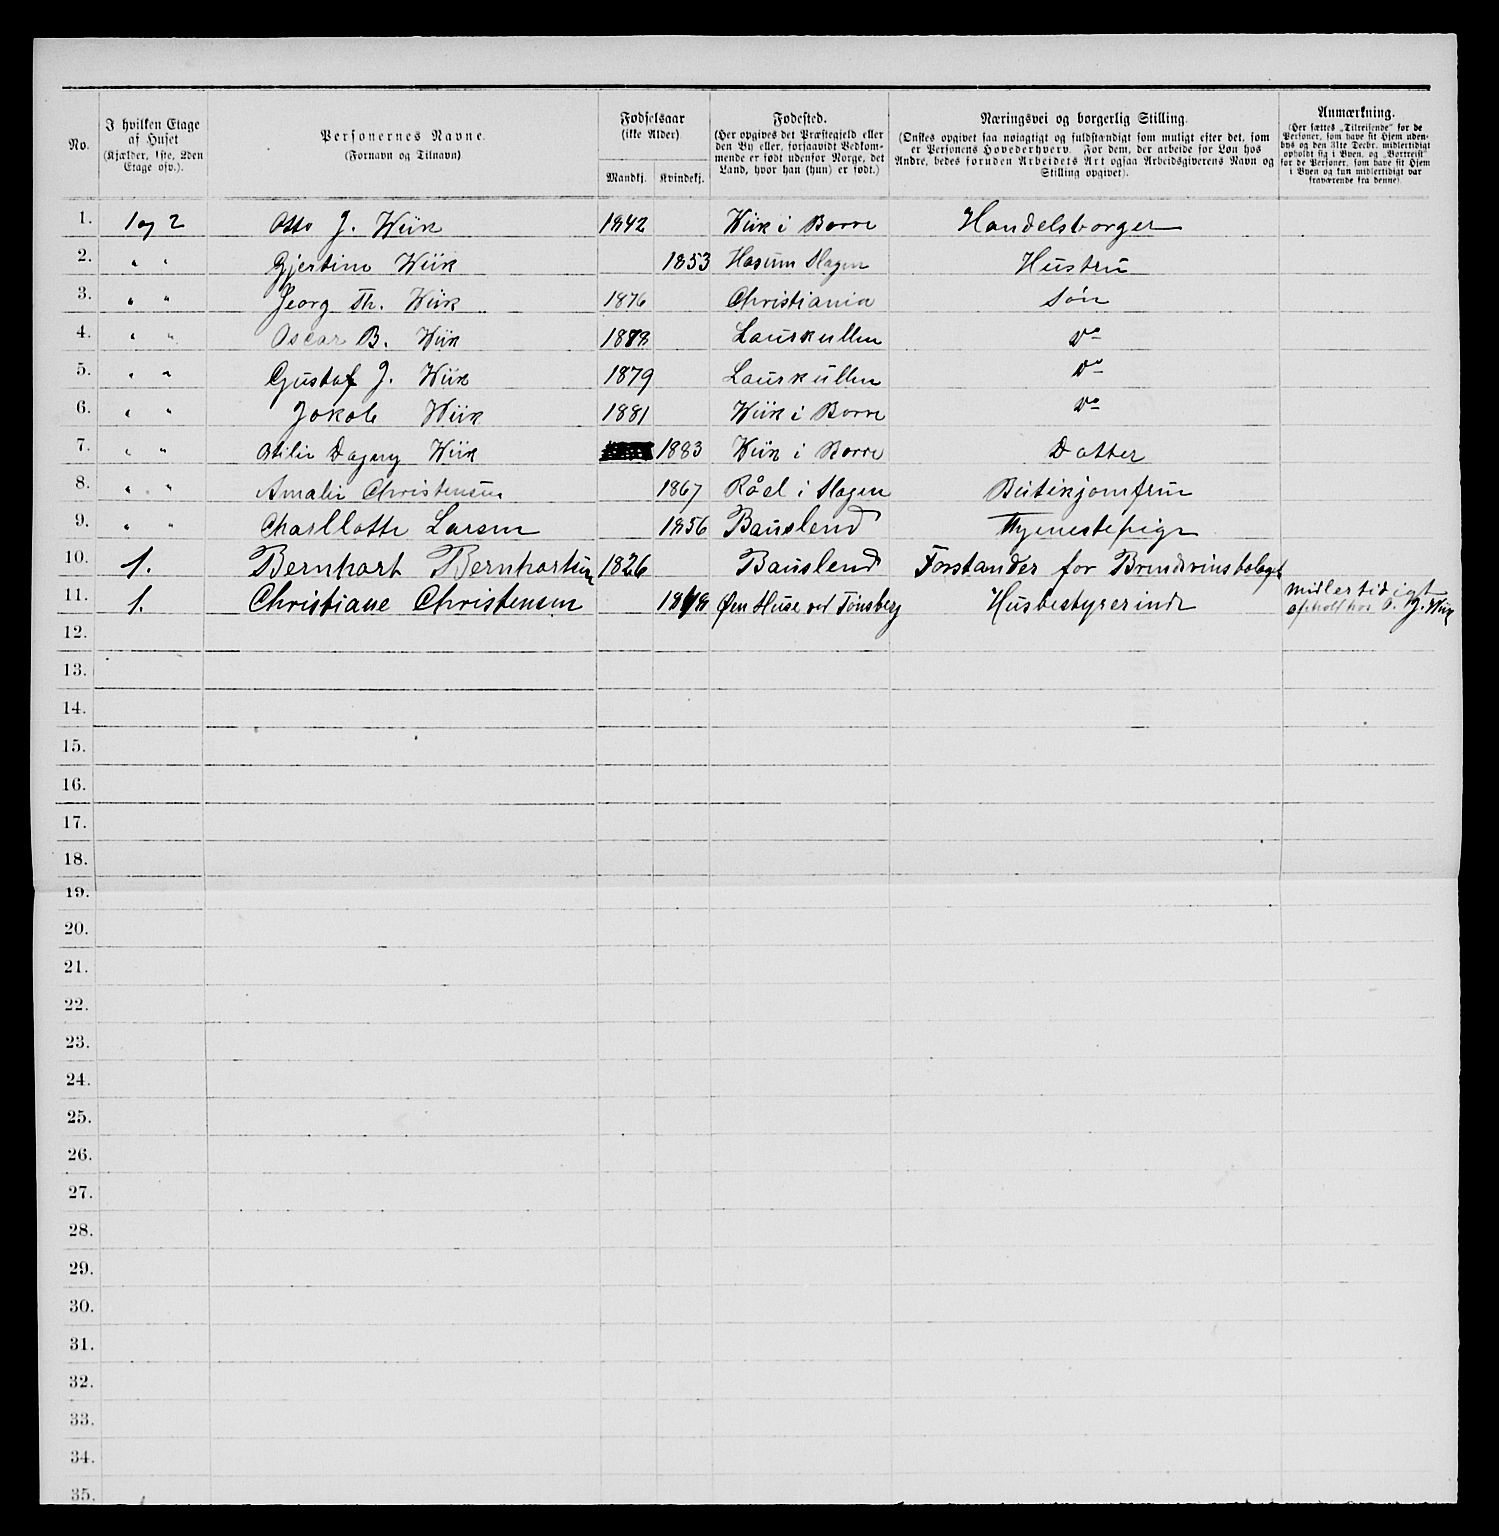 No.
I hvilken Etage af Huset
(Kjælder, 1ste, 2den Etage osv.).
Personernes Navne.
(Fornavn og Tilnavn)
Fødselsaar
(ikke Alder).
Mandkj. Kvindekj.
Fødested.
(Her opgives det Præstegjeld eller
den By eller, forsaavidt Vedkom-
mende er født udenfor Norge, det
Land, hvor han (hun) er født.)
Næringsvei og borgerlig Stilling.
(Ønskes opgivet saa nøiagtigt og fuldstændigt som muligt efter det, som
er Personens Hovederhverv. For dem, der arbeide for Løn hos
Andre, bedes foruden Arbeidets Art ogsaa Arbeidsgiverens Navn og
Stilling opgivet).
Anmærkning.
(Her sættes „Tilreisende" for de
Personer, som have sit Hjem uden-
bys og den 31te Decbr. midlertidigt
opholdt sig i Byen, og „Bortreist"
for de Personer, som have sit Hjem
i Byen og kun midlertidigt var
fraværende fra denne).
1. 1 og 2 Otto J. Wiik 1842 Wiik i Borre Handelsborger
2. " " Gjertine Wiik 1853 Slagen Hustru
3. " " Georg Th. Wiik 1876 Christiania Søn
4. " " Oscar B. Wiik 1878 Laurkullen Do
5. " " Gustaf J. Wiik 1879 Laurkullen Do
6. " " Jokob Wiik 1881 Wiik i Borre Do
7. " " Otilie Dagny Wiik 1883 Wiik i Borre Datter
8. " " Amalie Christensen 1867 Råel i Slagen Butikjomfru
9. " " Charllotte Larsen 1856 Bauslend Thjenestepige
10. 1. Bernhart Bernhartsen 1826 Bauslend Forstander for Brendvinsbolaget
11. 1. Christiane Christensen Øen Huse ved Tønsberg Husbestyrerinde midlertidigt
ophold hos O. J. Wiik
12.
13.
14.
15.
16.
17.
18.
19.
20.
21.
22.
23.
24.
25.
26.
27.
28.
29.
30.
31.
32.
33.
34.
35.